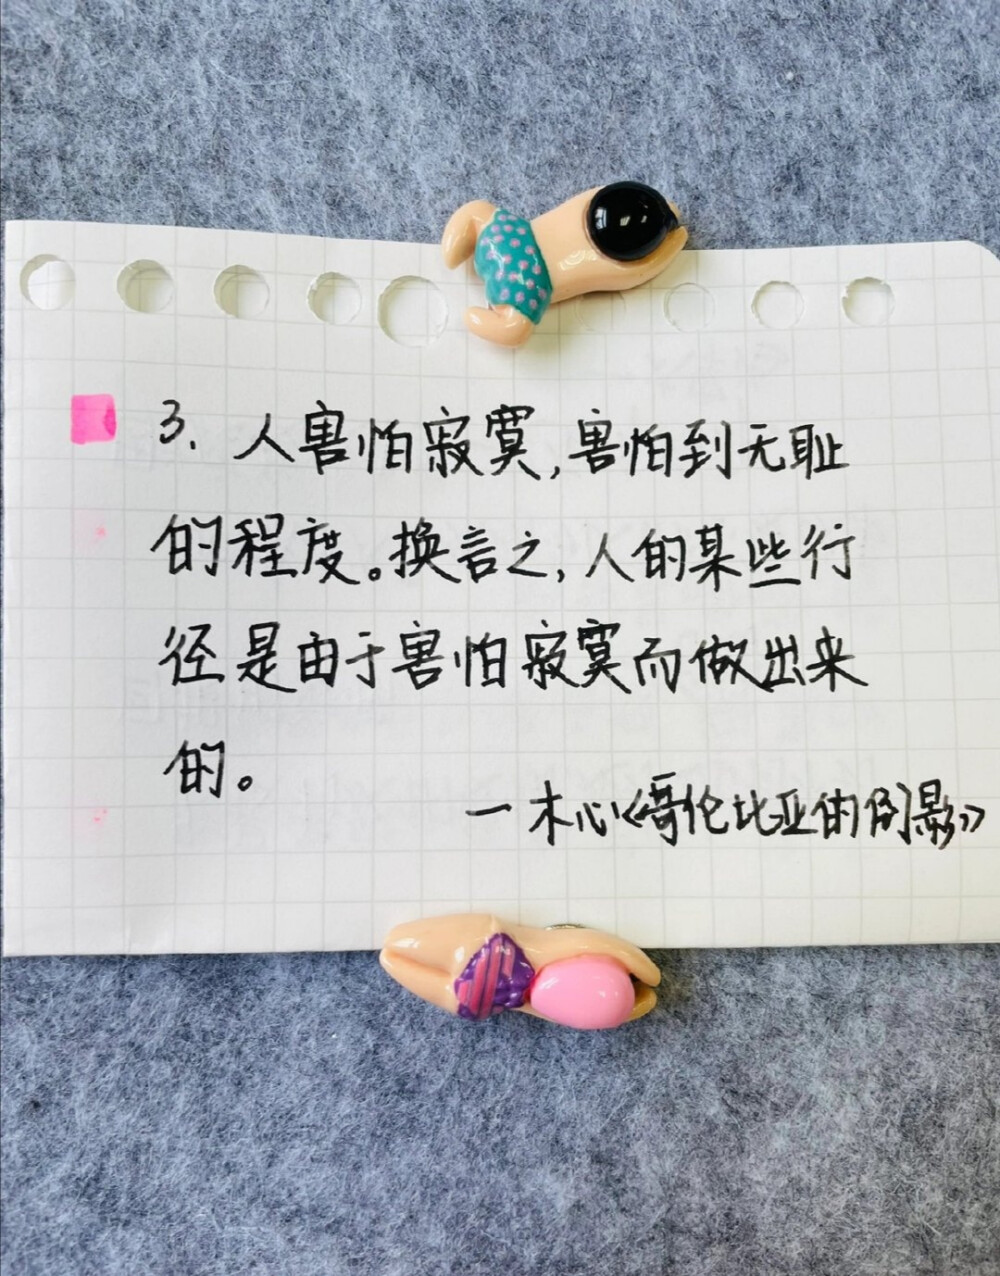 3. 人害怕寂寞,害怕到无耻
的程度。换言之,人的某些行
径是由于害怕寂寞而做出来
的。
一木心《哥伦比亚的倒影》